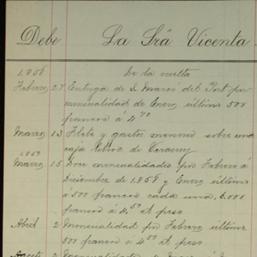 Debe La Srã Vicenta
De la vuelta
1858
Febrero 27 Entrega de S. Marcó del Pont por
mensualidad de Enero último 500
francos á 4 70
Marzo 13 Flete y gastos menores sobre una
caja libros de
1859
Marzo 15 mensualidades por Febrero á
Diciembre de 1858 y Enero último
á 500 francos cada una, 6.000
francos á el peso
Abril 2 Mensualidad por Febrero último
500 francos á 4 50 el peso
Agosto 2 Mensualidades